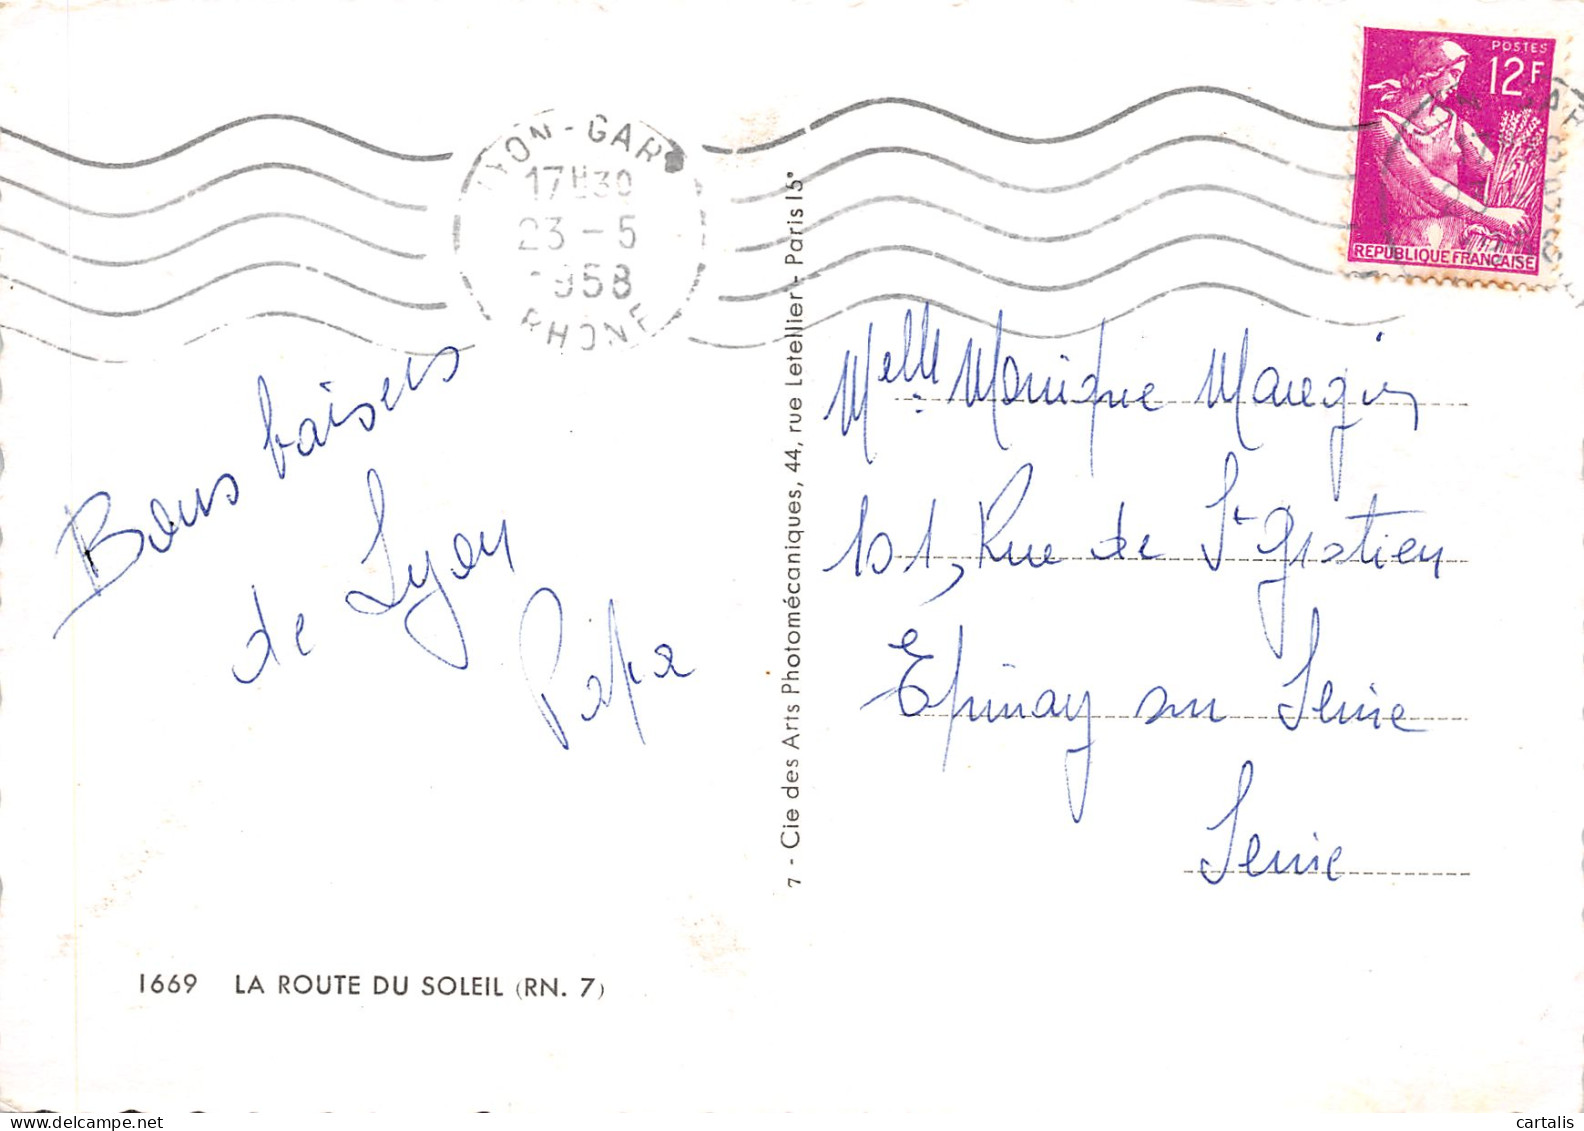 LYON-GARE
17H30
23-5
1958
RHONE
POSTES
12F
REPUBLIQUE FRANÇAISE
Bons baisers
de Lyon
Papa
7 - Cie des Arts Photomécaniques, 44, rue Letellier - Paris 15e
Melle Monique Maugin
101, Rue de St Gratien
Epinay sur Seine
Seine
1669 LA ROUTE DU SOLEIL (RN. 7)
cartalis